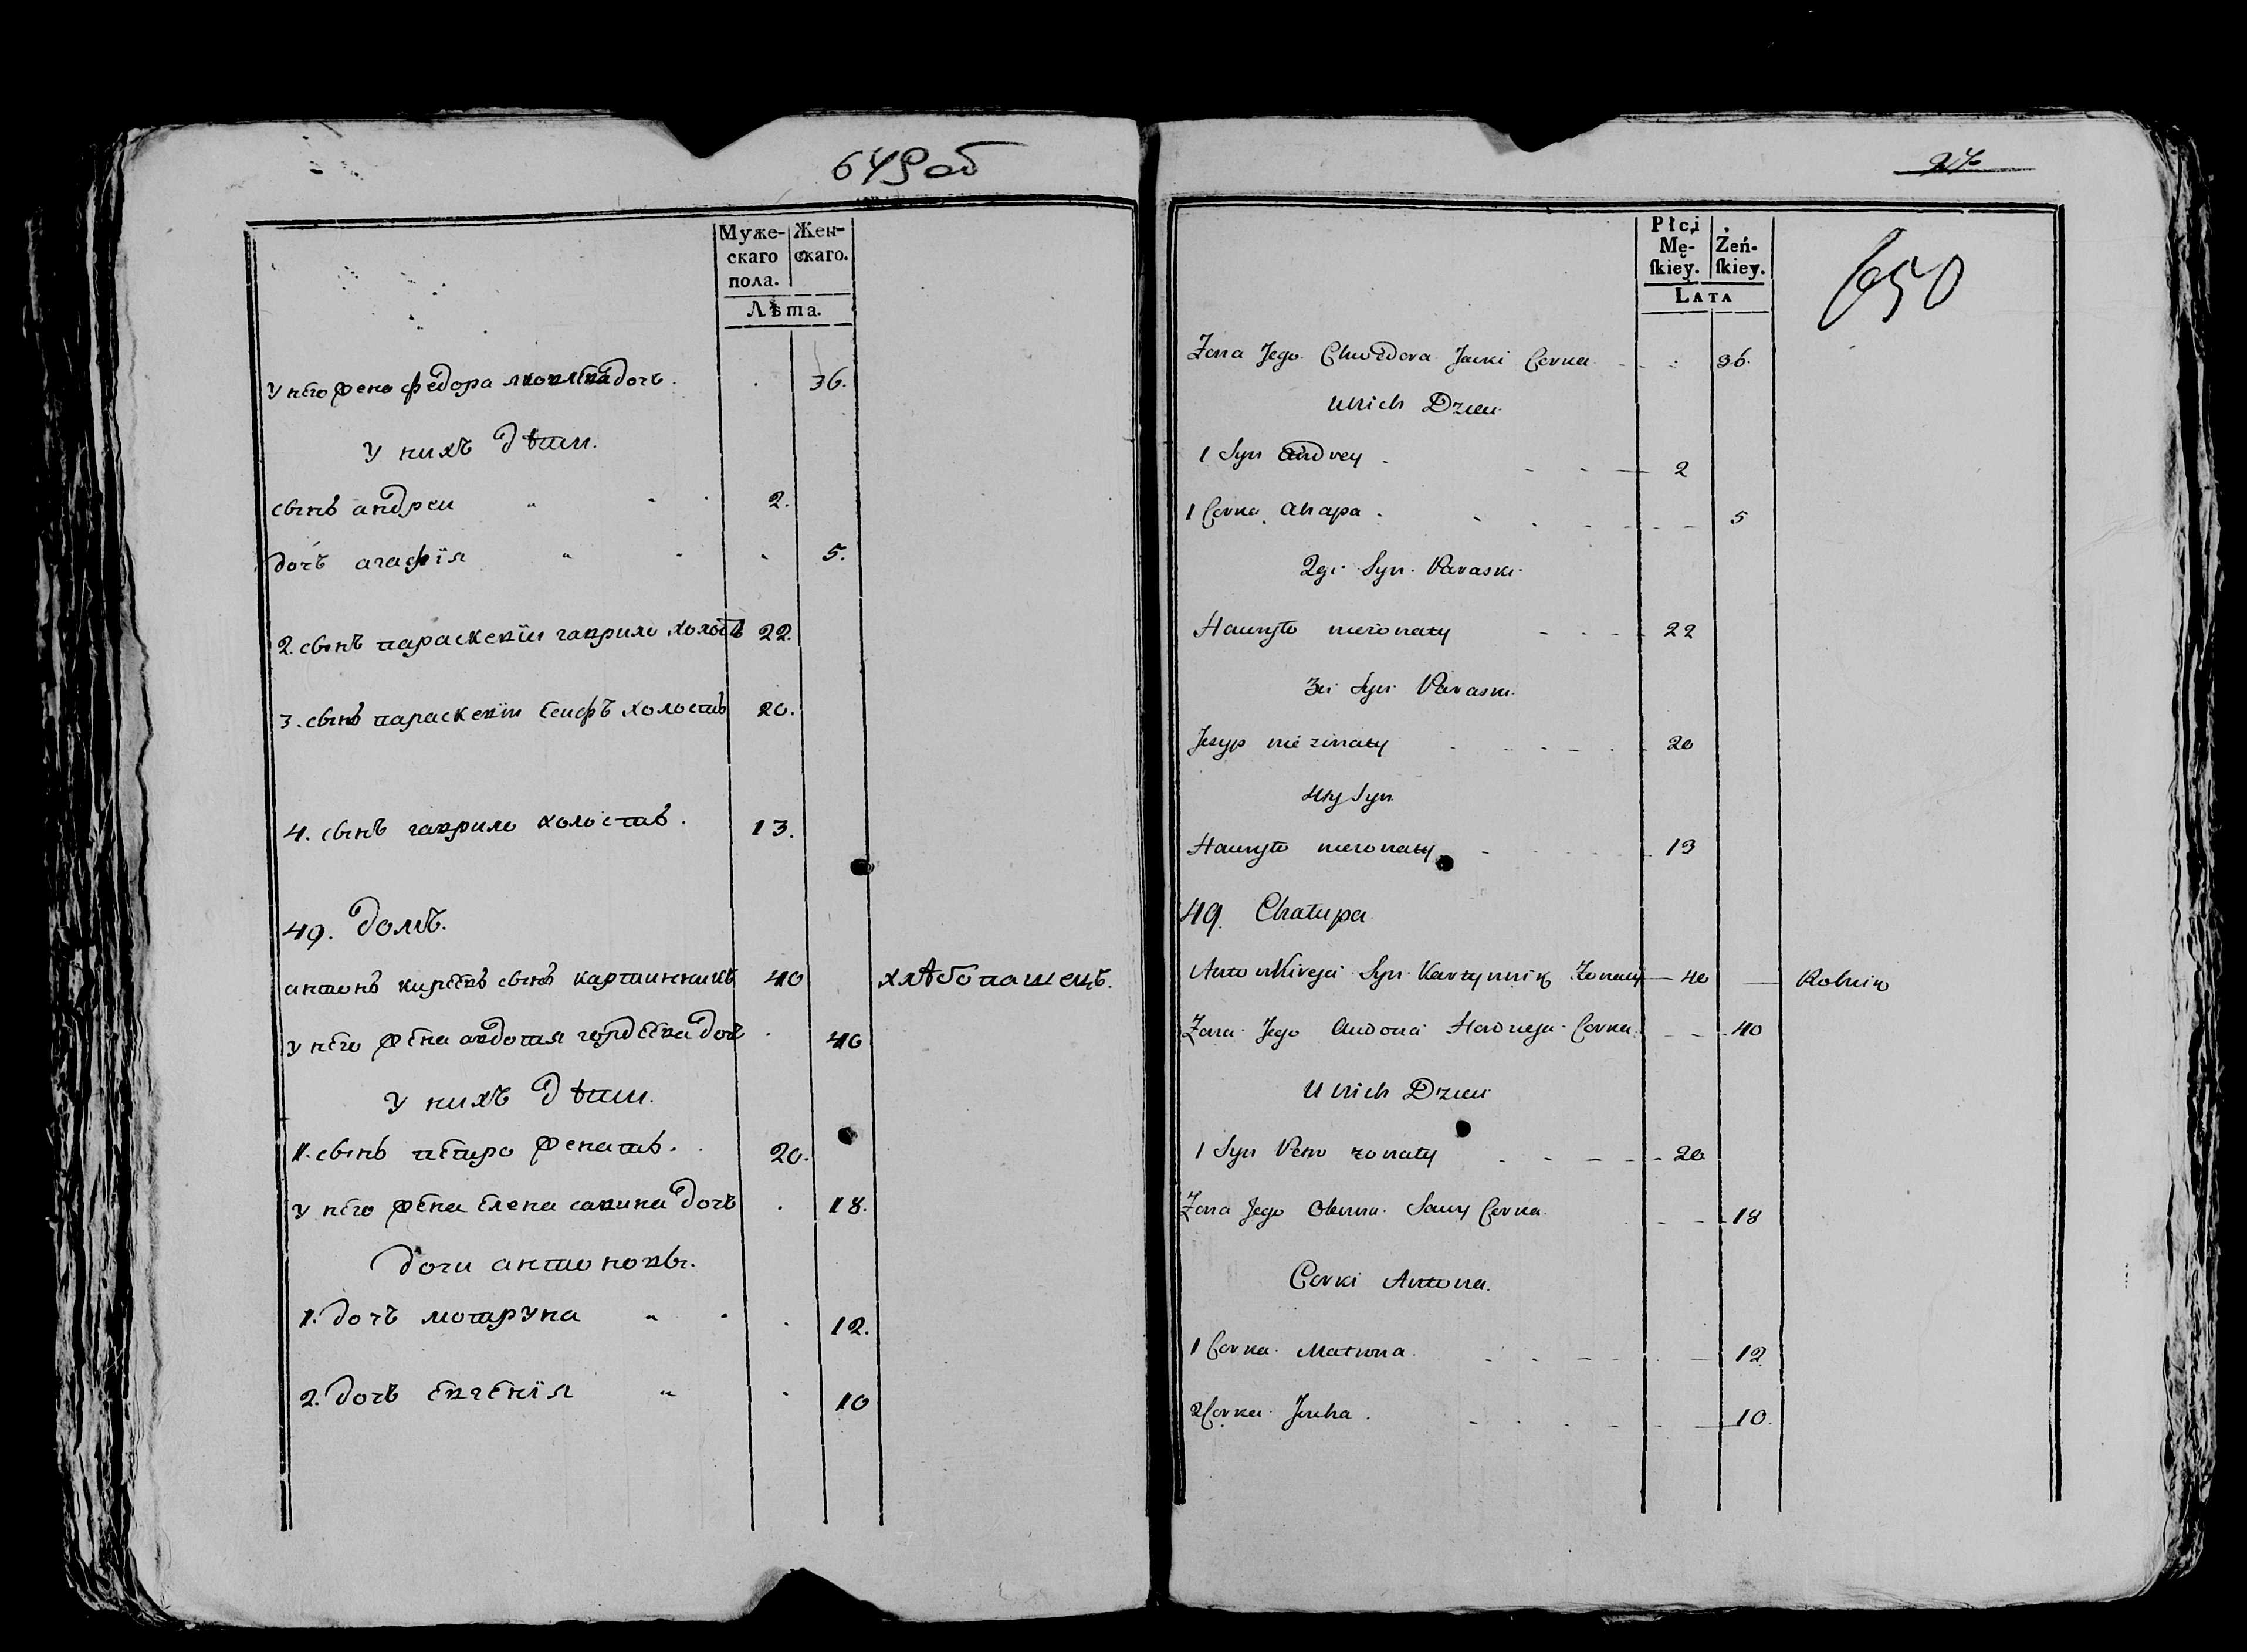 649 об
Муже-
скаго
пола.
Жен-
скаго.
Лѣта.
у него жена федора яковлева дочь. 36.
у нихъ дѣти.
сынъ андреи 2.
дочъ агафїя 5.
2. сынъ параскевїи гаврило холостъ 22.
3. сынъ параскевїи есифъ холостъ 20.
4. сынъ гаврило холостъ. 13.
49. домъ.
антонъ киреевъ сынъ картинникъ 40 хлѣбопашецъ.
у него жена авдотия гордеева дочъ 40
у нихъ дѣти.
1. сынъ петро женатъ. 20.
у него жена елена савина дочъ 18.
дочи антоновы.
1. дочъ мотруна 12.
2. дочъ евгенїя 10
27
650
Płci
Mę-
skiey.
Żeń-
skiey.
LATA
Zona Jego Chwedora Jacki Corka 36.
U nich Dzieci
1 Syn Andrey 2
1 Corka Ahapa 5
2gi Syn Paraski
Hawryło niezonaty 22
3ci Syn Paraski
Jesyp niezonaty 20
4ty Syn
Hawryło niezonaty 13
49. Chałupa
Anton Kireja Syn Kartynnik Zonaty 40 Rolnik
Zona Jego Awdotia Hordieja Corka 40
U nich Dzieci
1 Syn Petro zonaty 20
Zona Jego Olenna Sawy Corka 18
Corki Antona.
1 Corka Matrona 12
2 Corka Jeuha 10.